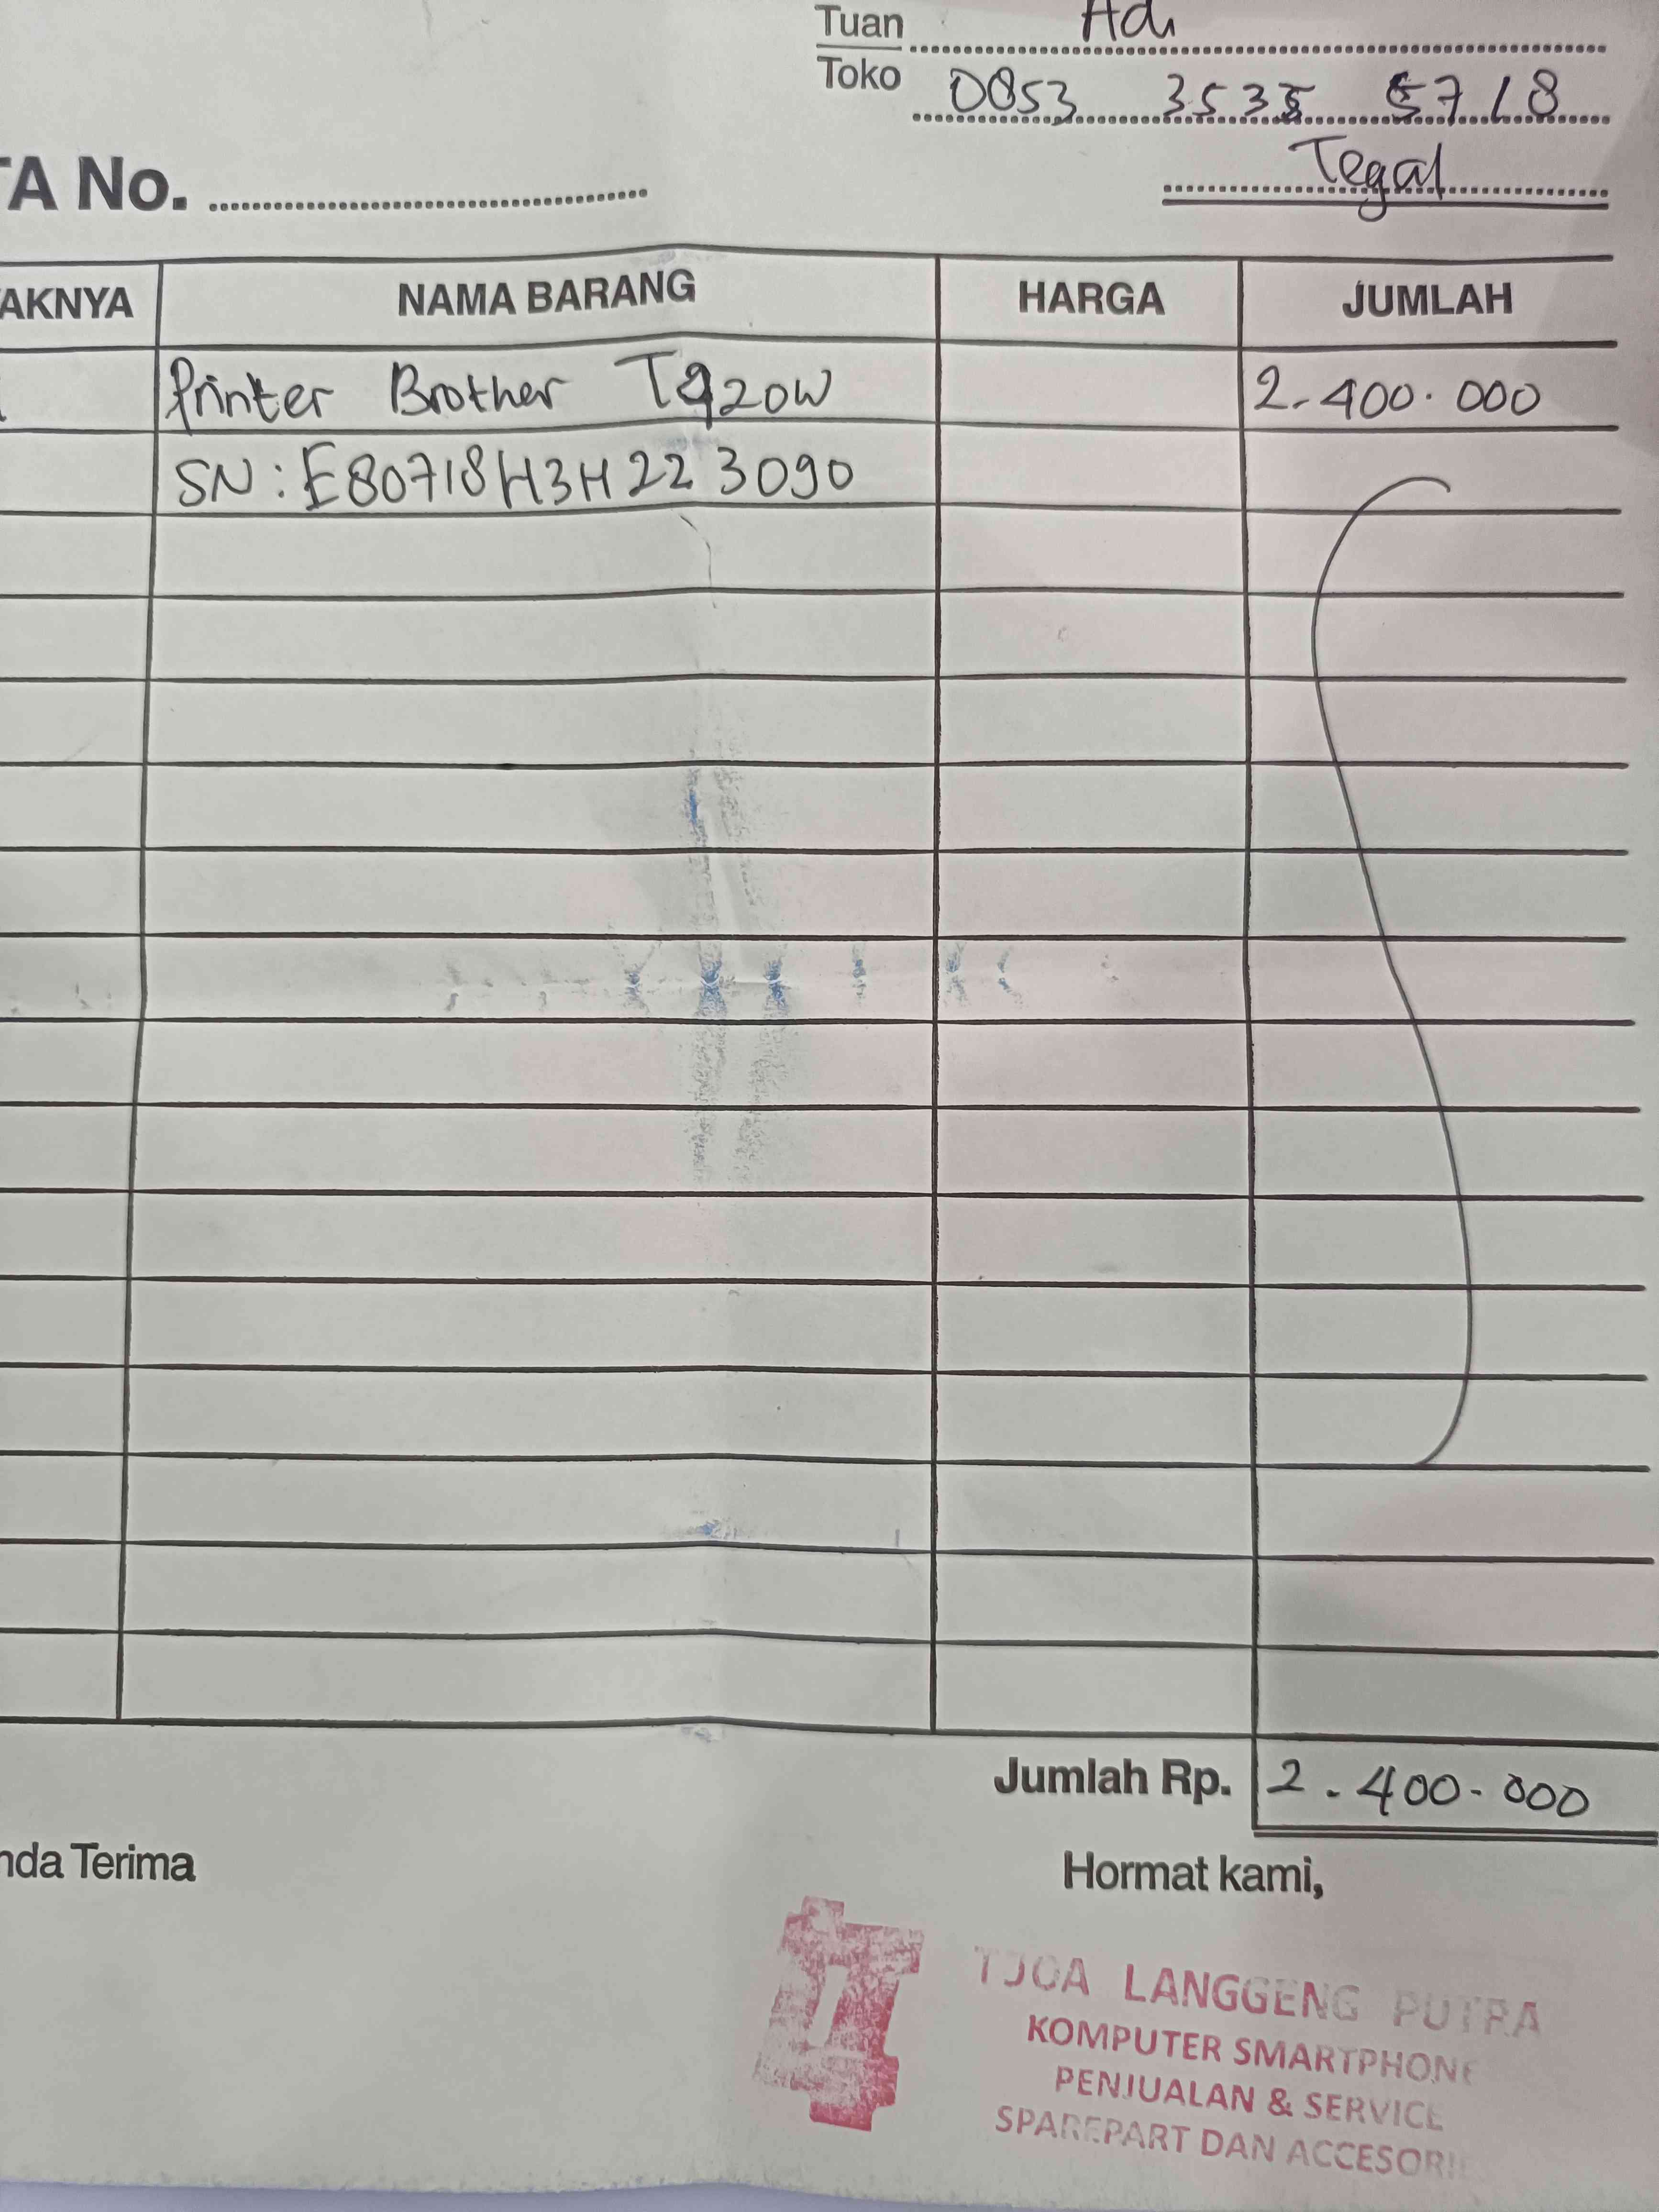 Tuan Adi
Toko 0853 3535 5718
Tegal
TA No.
AKNYA NAMA BARANG HARGA JUMLAH
Printer Brother T920W 2.400.000
SN: E80718H3H223090
Jumlah Rp. 2.400.000
nda Terima Hormat kami,
TJOA LANGGENG PUTRA
KOMPUTER SMARTPHONE
PENJUALAN & SERVICE
SPAREPART DAN ACCESORI